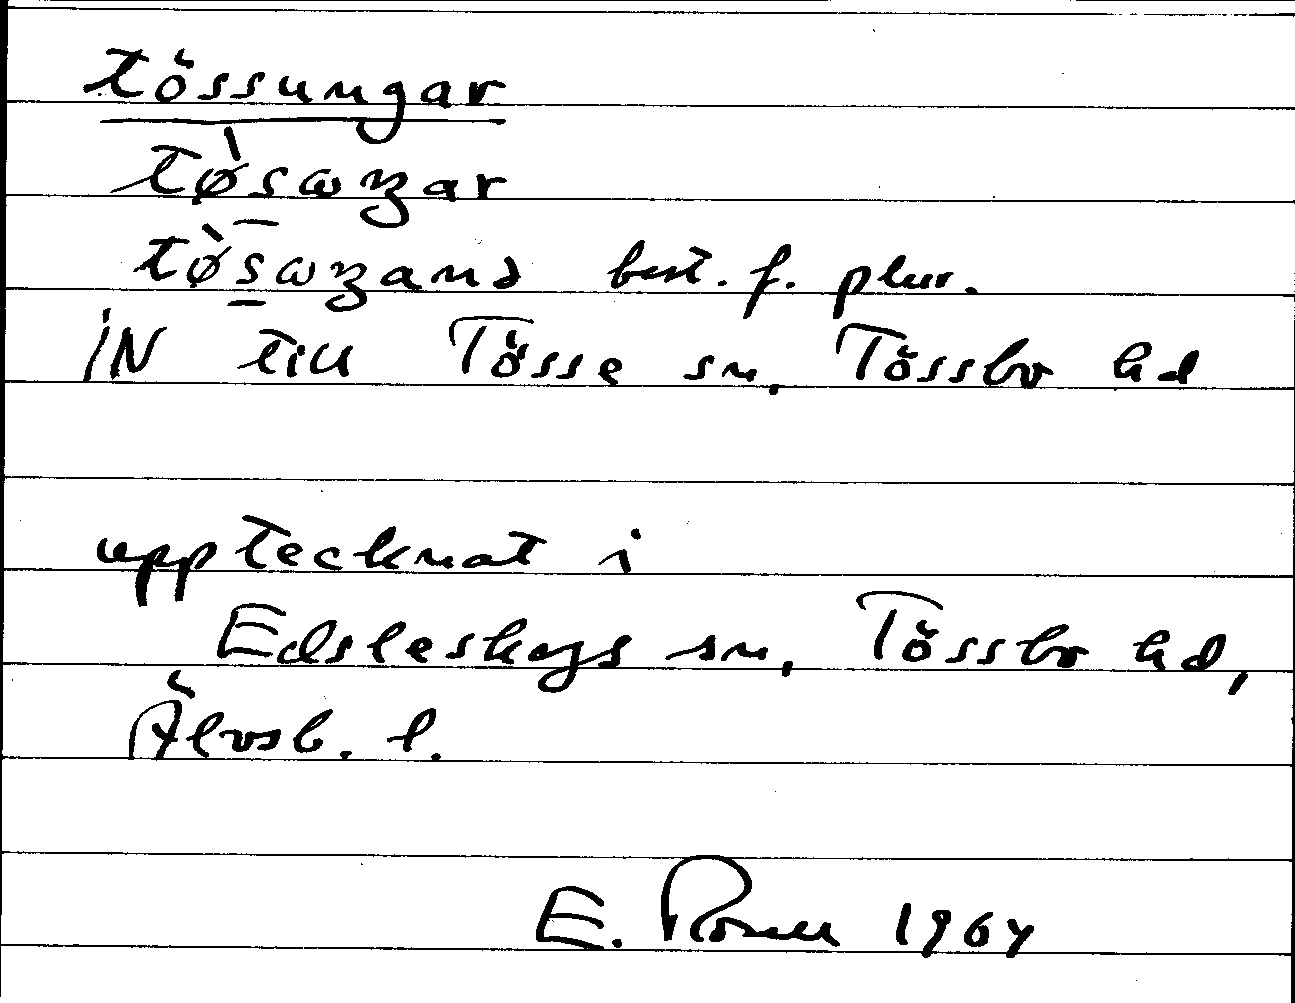 tössungar
tø̀s̱ωŋar
tø̀s̱ωŋanə best. f. plur.
IN till Tösse sn, Tössbo hd
upptecknat i
Edsleskogs sn, Tössbo hd,
Älvsb. l.
E. 1964